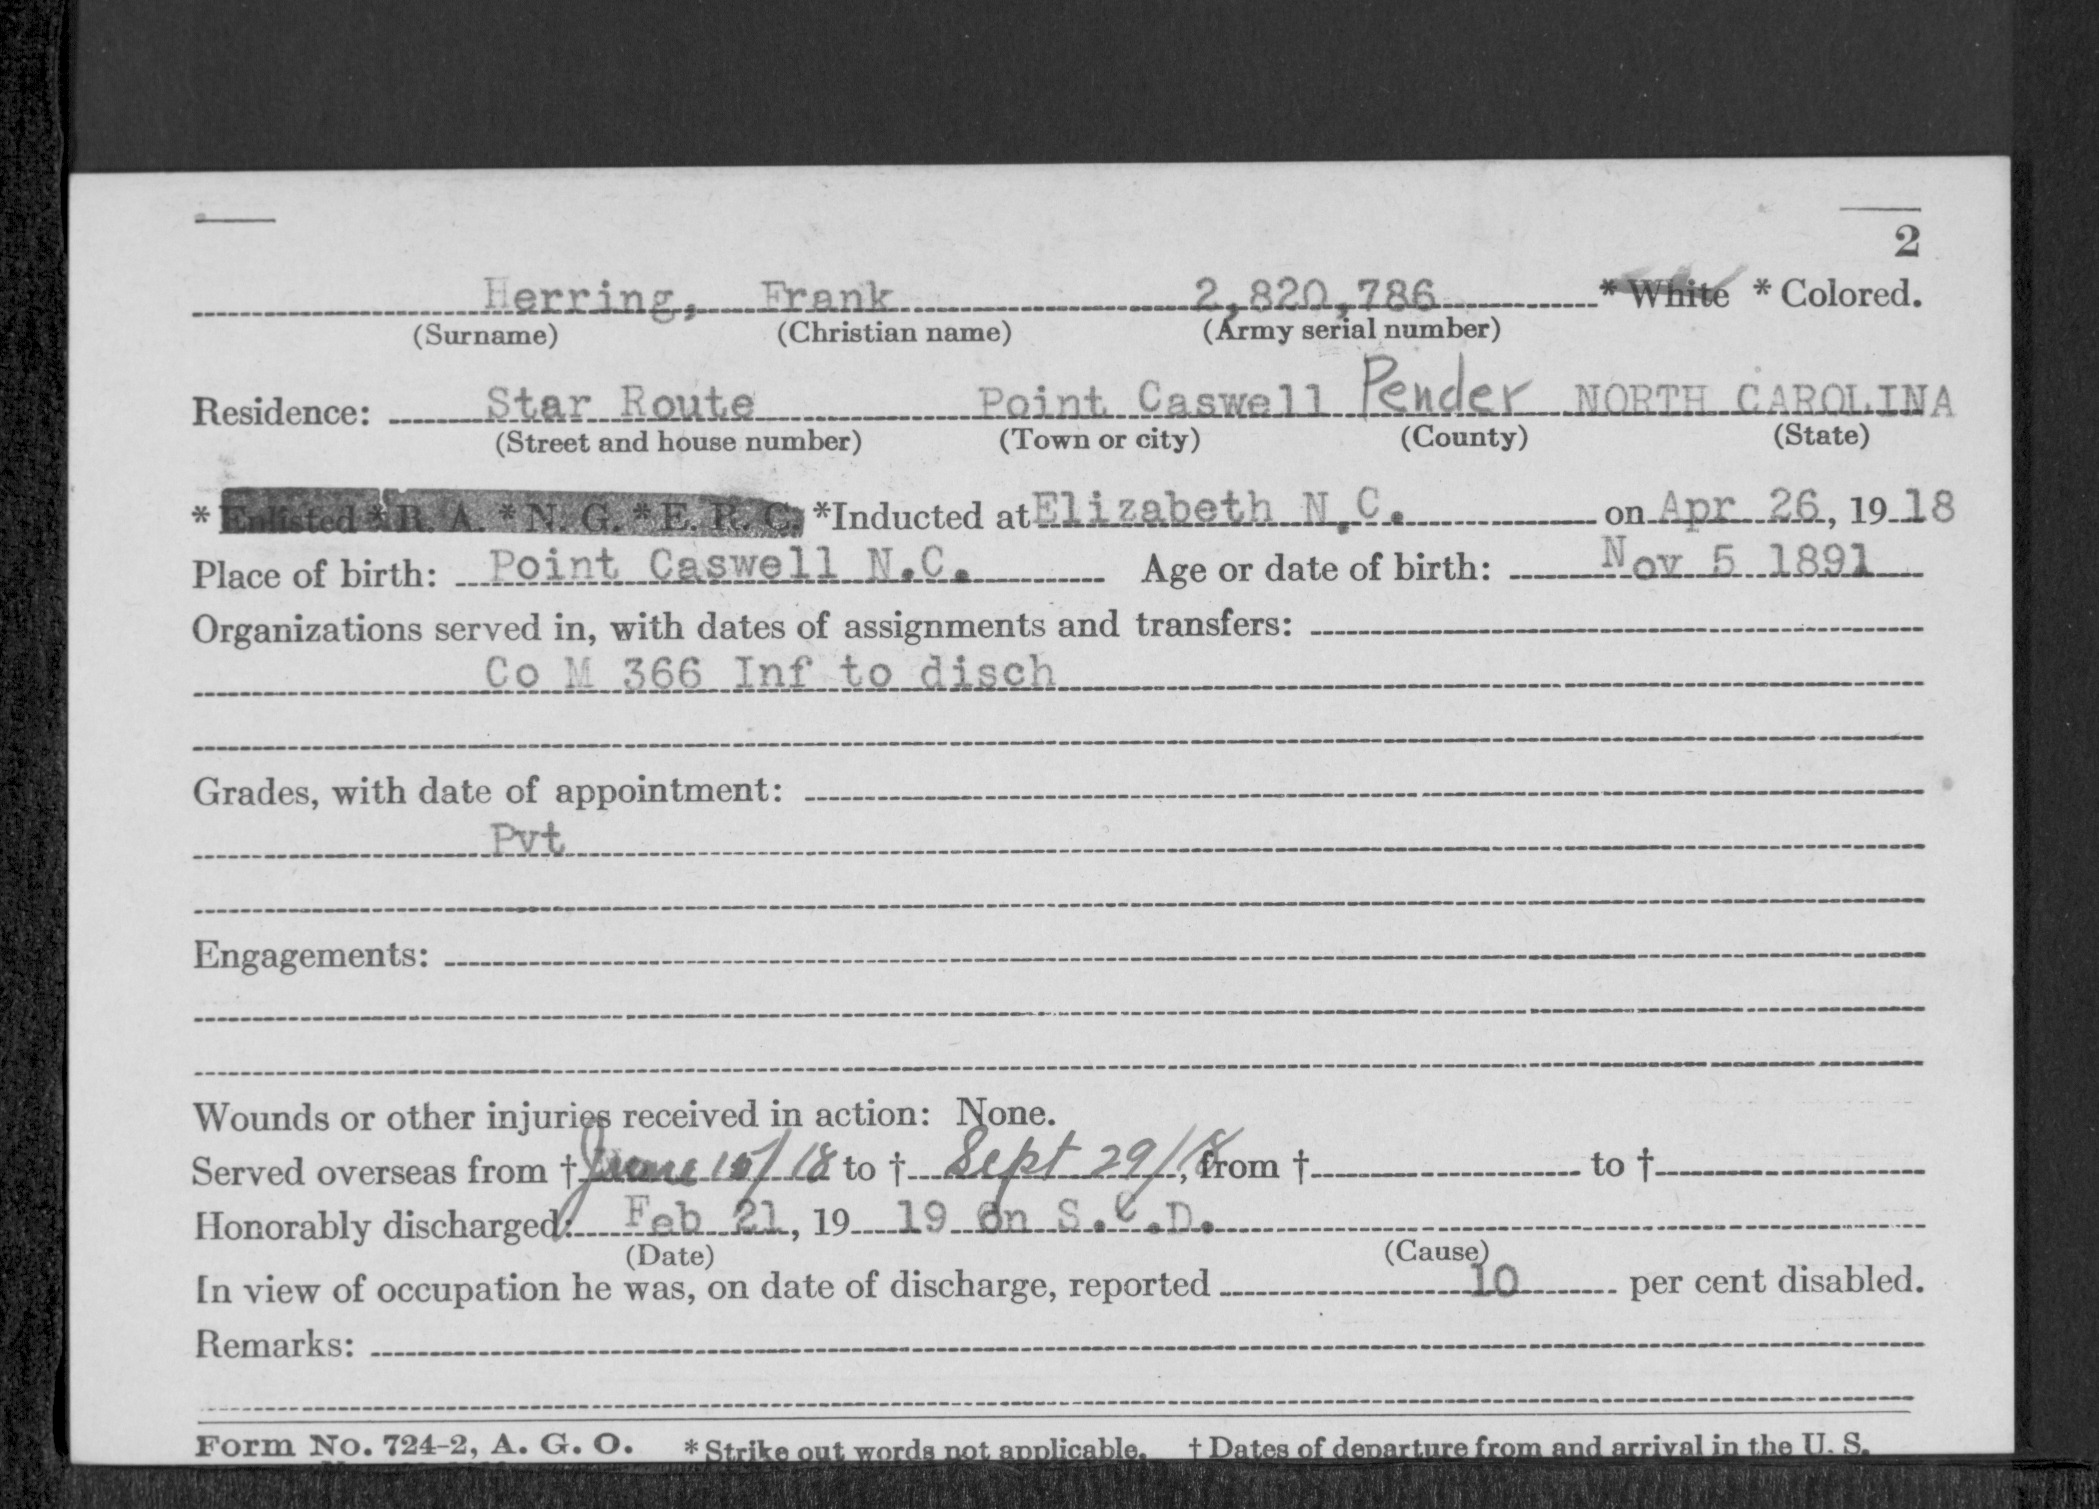 2
Herring, Frank 2,820,786 * White * Colored.
(Surname) (Christian name) (Army serial number)
Residence: Star Route Point Caswell Pender NORTH CAROLINA
(Street and house number) (Town or city) (County) (State)
* Enlisted * R. A. * N. G. * E. R. C. *Inducted at Elizabeth N.C. on Apr 26, 1918
Place of birth: Point Caswell N.C. Age or date of birth: Nov 5 1891
Organizations served in, with dates of assignments and transfers:
Co M 366 Inf to disch
Grades, with date of appointment:
Pvt
Engagements:
Wounds or other injuries received in action: None.
Served overseas from † June 15/18 to † Sept 29/18, from † to †
Honorably discharged: Feb 21, 19 19 on S.C.D.
(Date) (Cause)
In view of occupation he was, on date of discharge, reported 10 per cent disabled.
Remarks:
Form No. 724-2, A. G. O. * Strike out words not applicable. † Dates of departure from and arrival in the U. S.